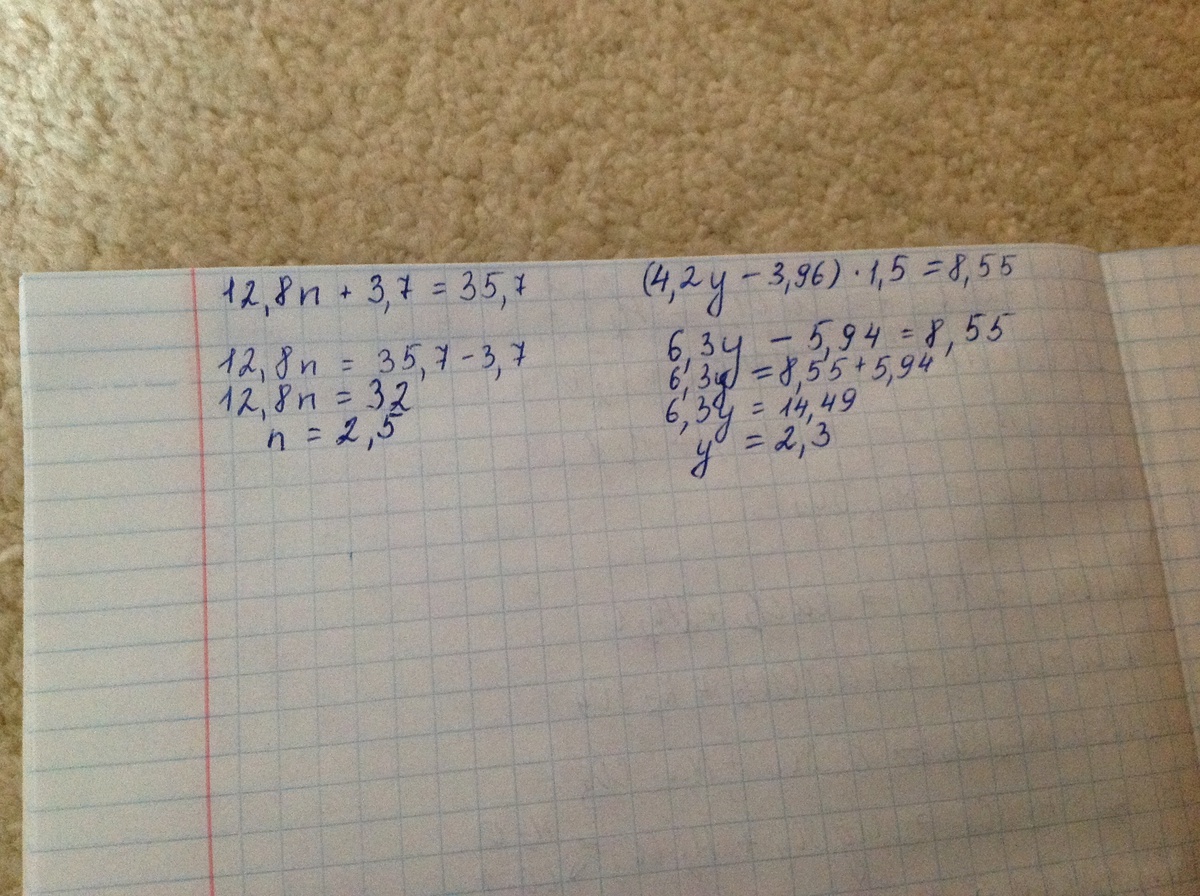 12,8n + 3,7 = 35,7
12,8n = 35,7 - 3,7
12,8n = 32
n = 2,5
(4,2y - 3,96) · 1,5 = 8,55
6,3y - 5,94 = 8,55
6,3y = 8,55 + 5,94
6,3y = 14,49
y = 2,3